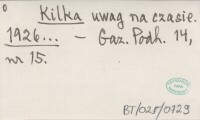 0
Kilka uwag na czasie.
1926... — Gaz. Podh. 14,
nr 15.
BT/028/0129